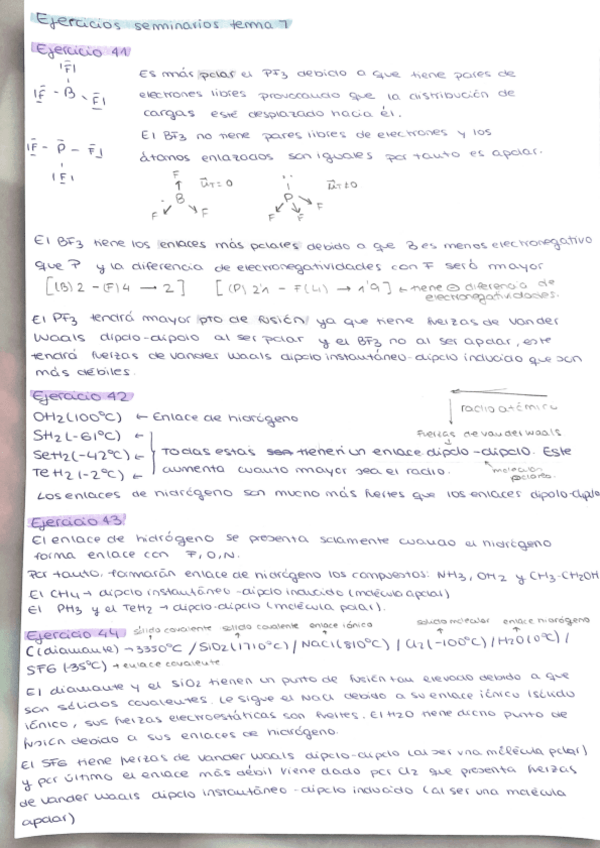 Ejercicios seminarios tema 7
Ejercicio 41
|F|
|F - B - F|
Es más polar el PF3 debido a que tiene pares de
electrones libres provocando que la distribución de
cargas esté desplazado hacia él.
El BF3 no tiene pares libres de electrones y los
átomos enlazados son iguales por tanto es apolar.
|F - P - F|
|F|
F B F F μT = 0
P F F F μT ≠ 0
El BF3 tiene los enlaces más polares debido a que B es menos electronegativo
que P y la diferencia de electronegatividades con F será mayor
[(B) 2 - (F) 4 → 2] [(P) 2'1 - F(4) → 1'9] ← tiene ⊖ diferencia de
electronegatividades.
El PF3 tendrá mayor pto de fusión ya que tiene fuerzas de vander
Waals dipolo-dipolo al ser polar y el BF3 no al ser apolar, este
tendrá fuerzas de vander waals dipolo instantáneo-dipolo inducido que son
más débiles.
Ejercicio 42
OH2 (100ºC) ← Enlace de hidrógeno
radio atómico
SH2 (-61ºC) ←
fuerzas de van der waals
SeH2 (-42ºC) ← Todas estas tienen un enlace dipolo-dipolo. Este
TeH2 (-2ºC) ← aumenta cuanto mayor sea el radio.
molécula
polar
Los enlaces de hidrógeno son mucho más fuertes que los enlaces dipolo-dipolo
Ejercicio 43
El enlace de hidrógeno se presenta solamente cuando el hidrógeno
forma enlace con F, O, N.
Por tanto, formarán enlace de hidrógeno los compuestos: NH3, OH2 y CH3-CH2OH
El CH4 → dipolo instantáneo-dipolo inducido (molécula apolar)
El PH3 y el TeH2 → dipolo-dipolo (molécula polar).
Ejercicio 44 sólido covalente sólido covalente enlace iónico sólido molecular enlace hidrógeno
C(diamante) → 3350ºC / SiO2 (1710ºC) / NaCl (810ºC) / Cl2 (-100ºC) / H2O (0ºC) /
SF6 (-35ºC) → enlace covalente
El diamante y el SiO2 tienen un punto de fusión tan elevado debido a que
son sólidos covalentes. Le sigue el NaCl debido a su enlace iónico (sólido
iónico, sus fuerzas electroestáticas son fuertes. El H2O tiene dicho punto de
fusión debido a sus enlaces de hidrógeno.
El SF6 tiene fuerzas de vander waals dipolo-dipolo (al ser una molécula polar)
y por último el enlace más débil viene dado por Cl2 que presenta fuerzas
de vander waals dipolo instantáneo-dipolo inducido (al ser una molécula
apolar)